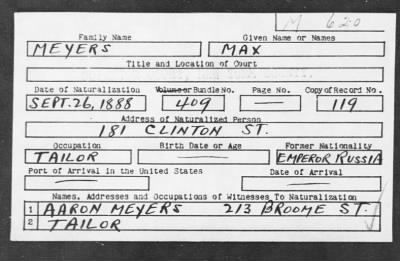 M 620
Family Name Given Name or Names
MEYERS MAX
Title and Location of Court
Date of Naturalization Volume or Bundle No. Page No. Copy of Record No.
SEPT. 26, 1888 409 — 119
Address of Naturalized Person
181 CLINTON ST.
Occupation Birth Date or Age Former Nationality
TAILOR — EMPEROR RUSSIA
Port of Arrival in the United States Date of Arrival
— —
Names, Addresses and Occupations of Witnesses To Naturalization
1 AARON MEYERS 213 BROOME ST.
2 TAILOR